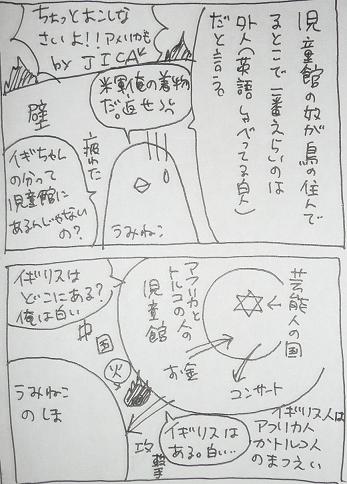 児童館の奴が鳥の住んで
るとこで一番えらいのは
外人(英語しゃべってる白人)
だと言う。
ちょっとおこしな
さいよ!!アメリカも
by JICA
米軍俺の着物
だ。返せよ。
壁
疲れた
イギちゃん
の分って
児童館に
あるんじゃないの?
うみねこ
芸能人の国
アフリカと
トルコの人の
児童館
お金
コンサート
イギリスは
どこにある?
俺は白い
中国
火
うみねこ
のしま
攻撃
イギリスは
ある。白い…
イギリス人は
アフリカ人
かトルコ人
のまつえい